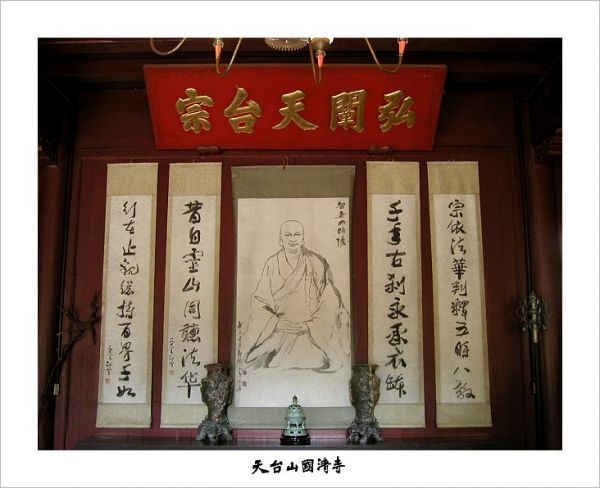 弘闡天台宗
宗依法華判釋五時八教
千年古刹永承衣缽
智者大師像
昔日靈山同聽法华
行在止觀總持百界千如
天台山國清寺